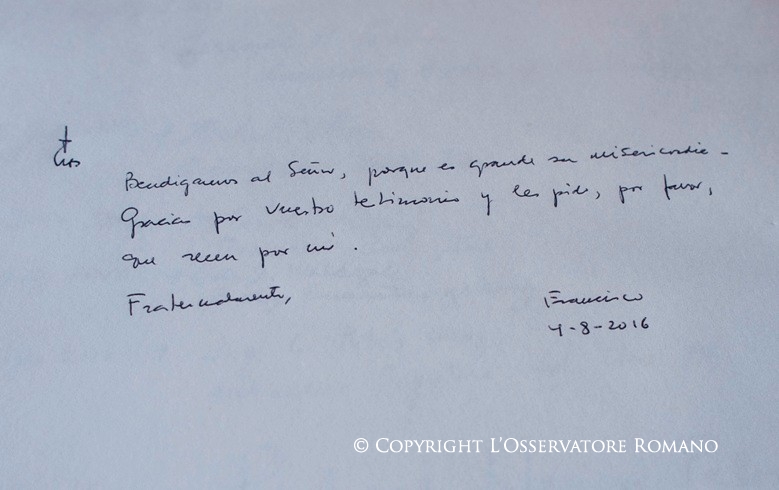 Bendigamos al Señor, porque es grande su misericordia -
Gracias por vuestro testimonio y les pido, por favor,
que recen por mí.
Fraternalmente,
Francisco
4-8-2016
© Copyright L'Osservatore Romano